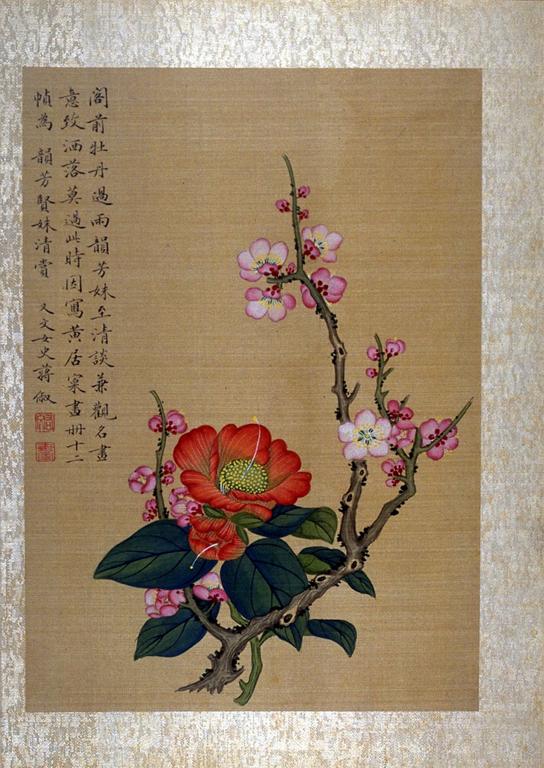 阁前牡丹過雨韻芳妹至清談兼觀名畫
意致洒落莫過此時因寫黄居寀畫冊十二
幀為 韻芳賢妹清賞 又文女史蔣俶